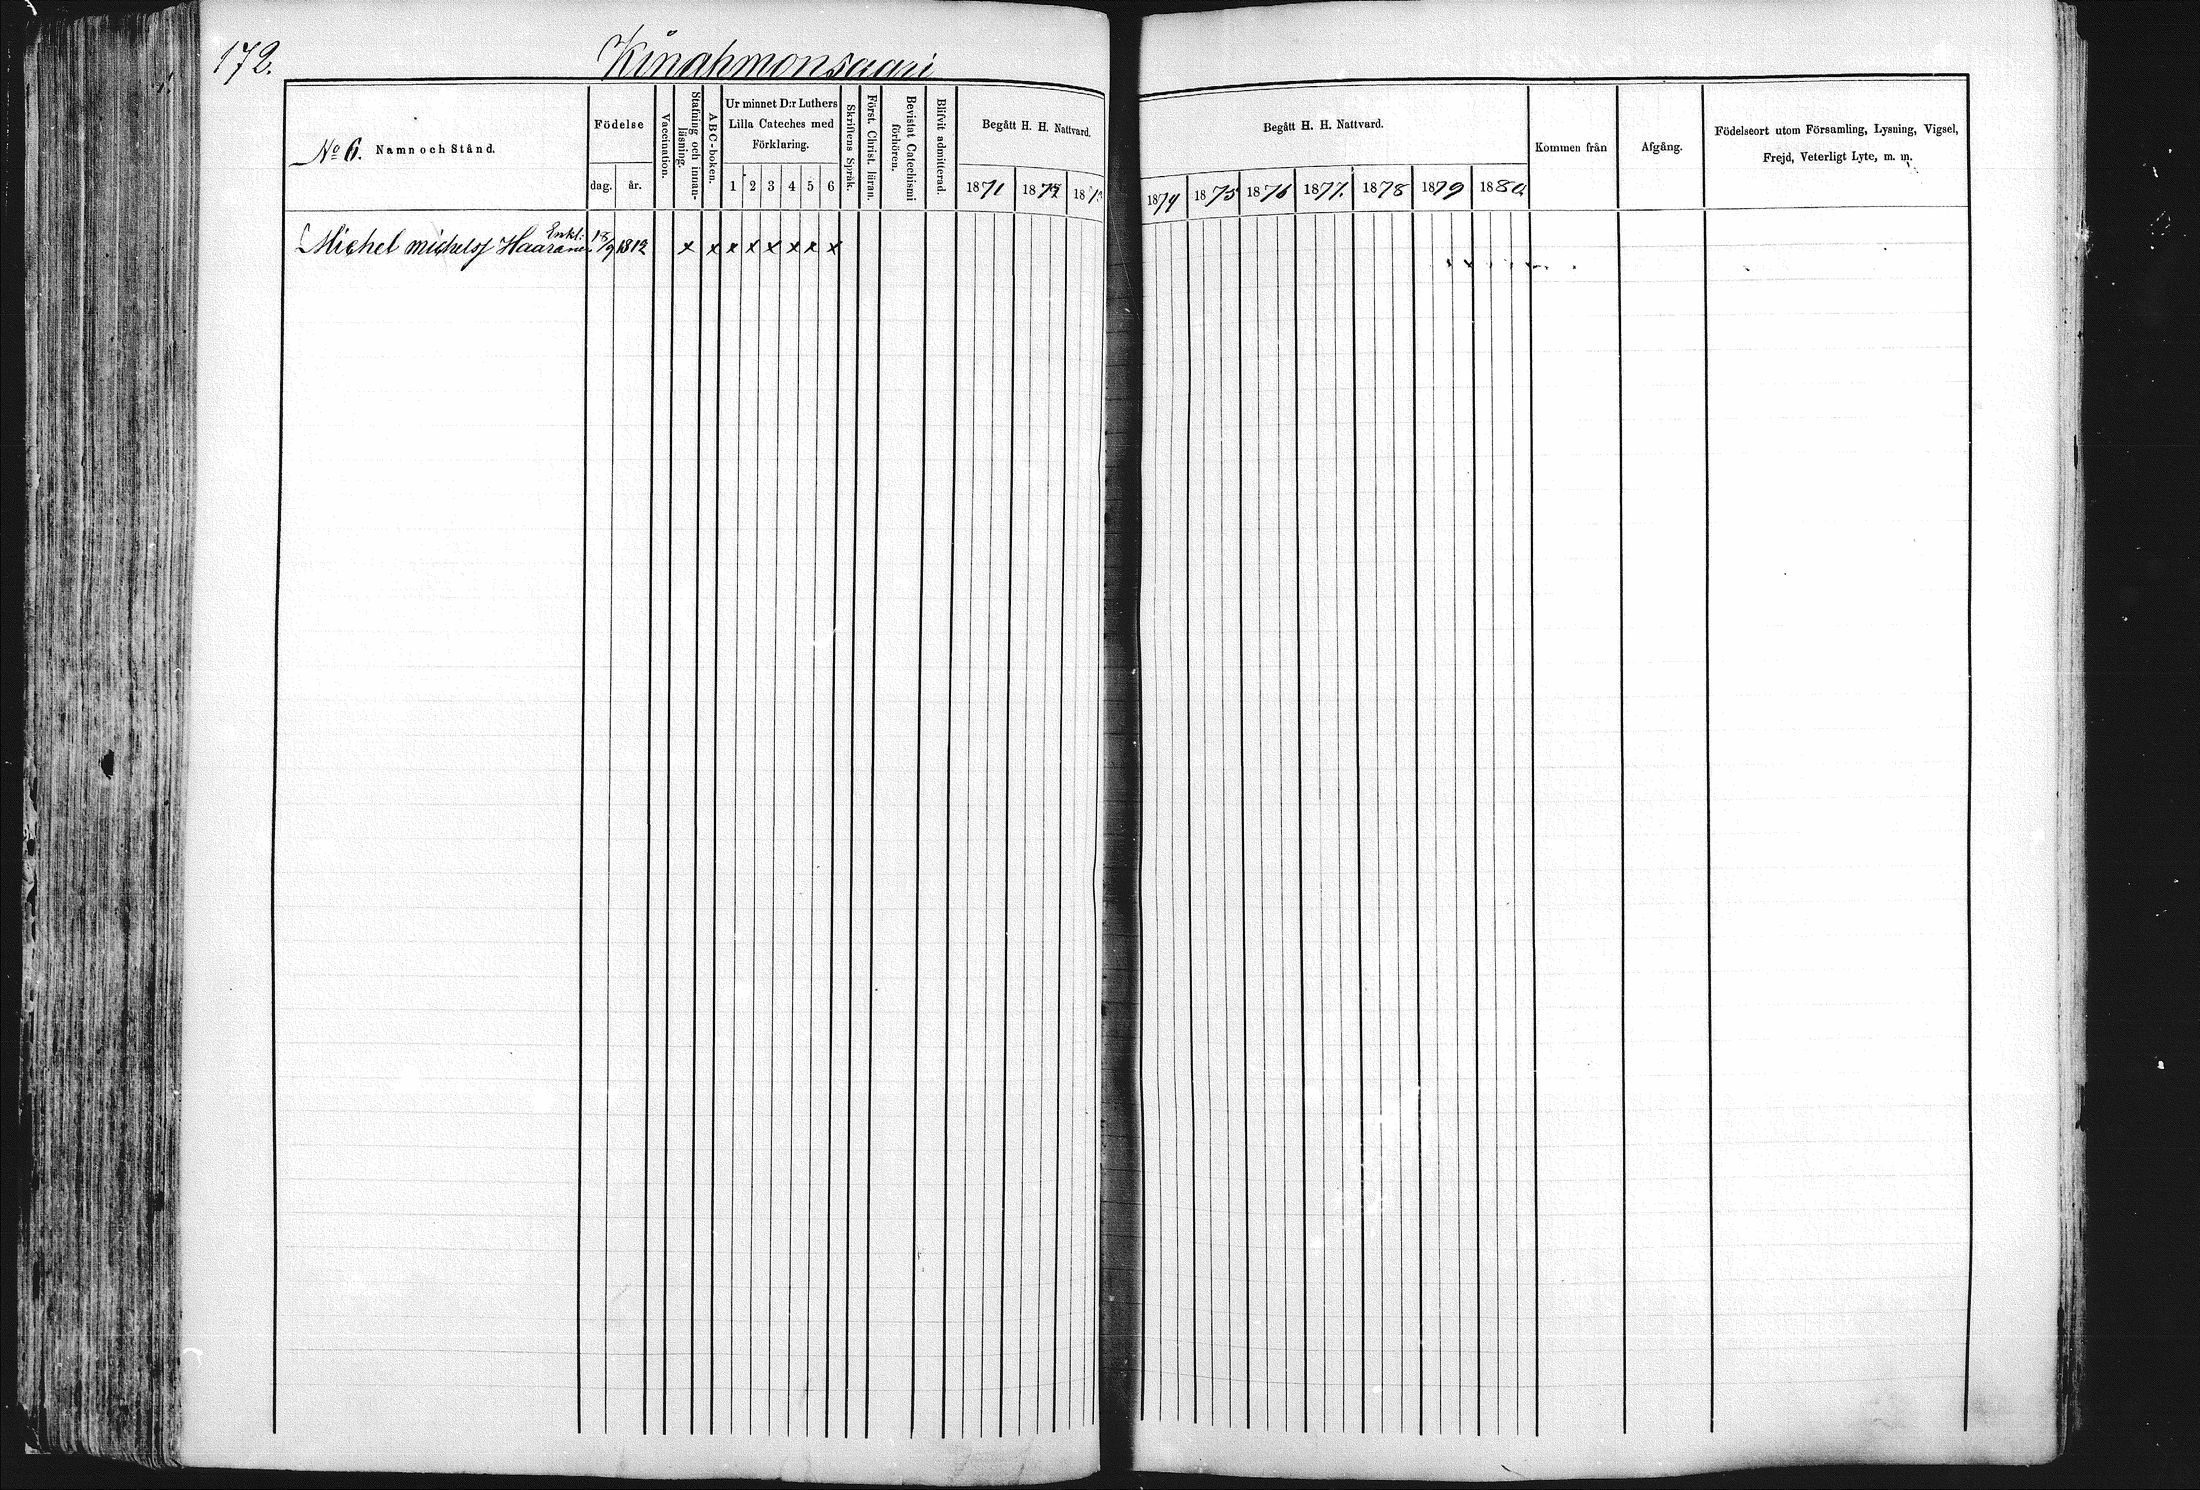 172.
Kinahmonsaari
No 6. Namn och Stånd.
Födelse
dag. år.
Vaccination.
Stafning och innan-
läsning.
ABC-boken.
Ur minnet D:r Luthers
Lilla Cateches med
Förklaring.
1 2 3 4 5 6
Skriftens Språk.
Först. Christ. läran.
Bevistat Catechismi
förhören.
Blifvit admitterad.
Begått H. H. Nattvard.
1871 1872 187
Begått H. H. Nattvard.
1874 1875 1876 1877. 1878 1879 1880
Kommen från
Afgång.
Födelseort utom Församling, Lysning, Vigsel,
Frejd, Veterligt Lyte, m. m.
Enkl:
Michel Michelsf Haaranen 18/9 1812 x x x x x x x x